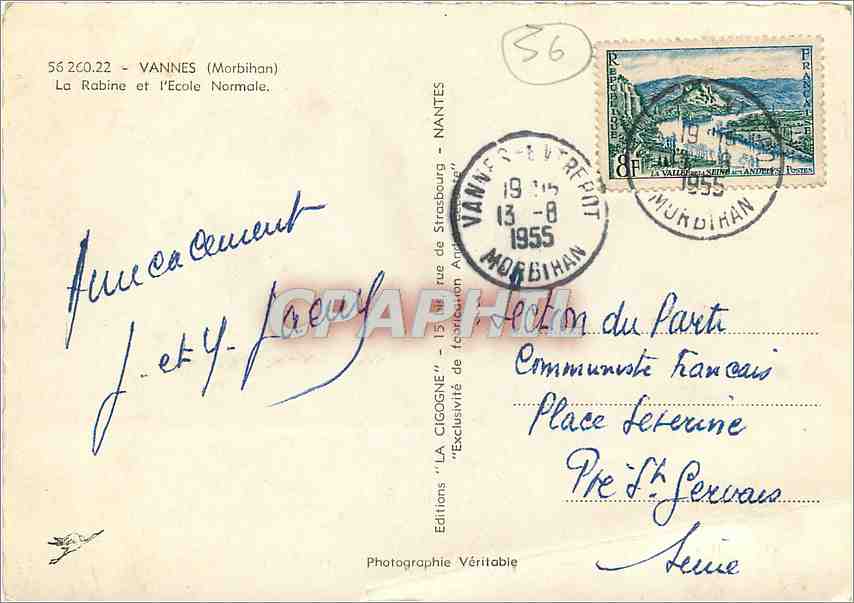 56 260.22 - VANNES (Morbihan)
La Rabine et l'Ecole Normale.
56
RÉPUBLIQUE FRANÇAISE
8F
LA VALLÉE DE LA SEINE AUX ANDELYS POSTES
VANNES-ENTREPOT
19
13 -8
1955
MORBIHAN
19
13 -8
1955
MORBIHAN
Amicalement
J. et Y.
Editions "LA CIGOGNE" - 15 bis, rue de Strasbourg - NANTES
"Exclusivité de fabrication André Leconte"
Section du Parti
Communiste Francais
Place Severine
Pré St Gervais
Seine
Photographie Véritable
CPAPHIL